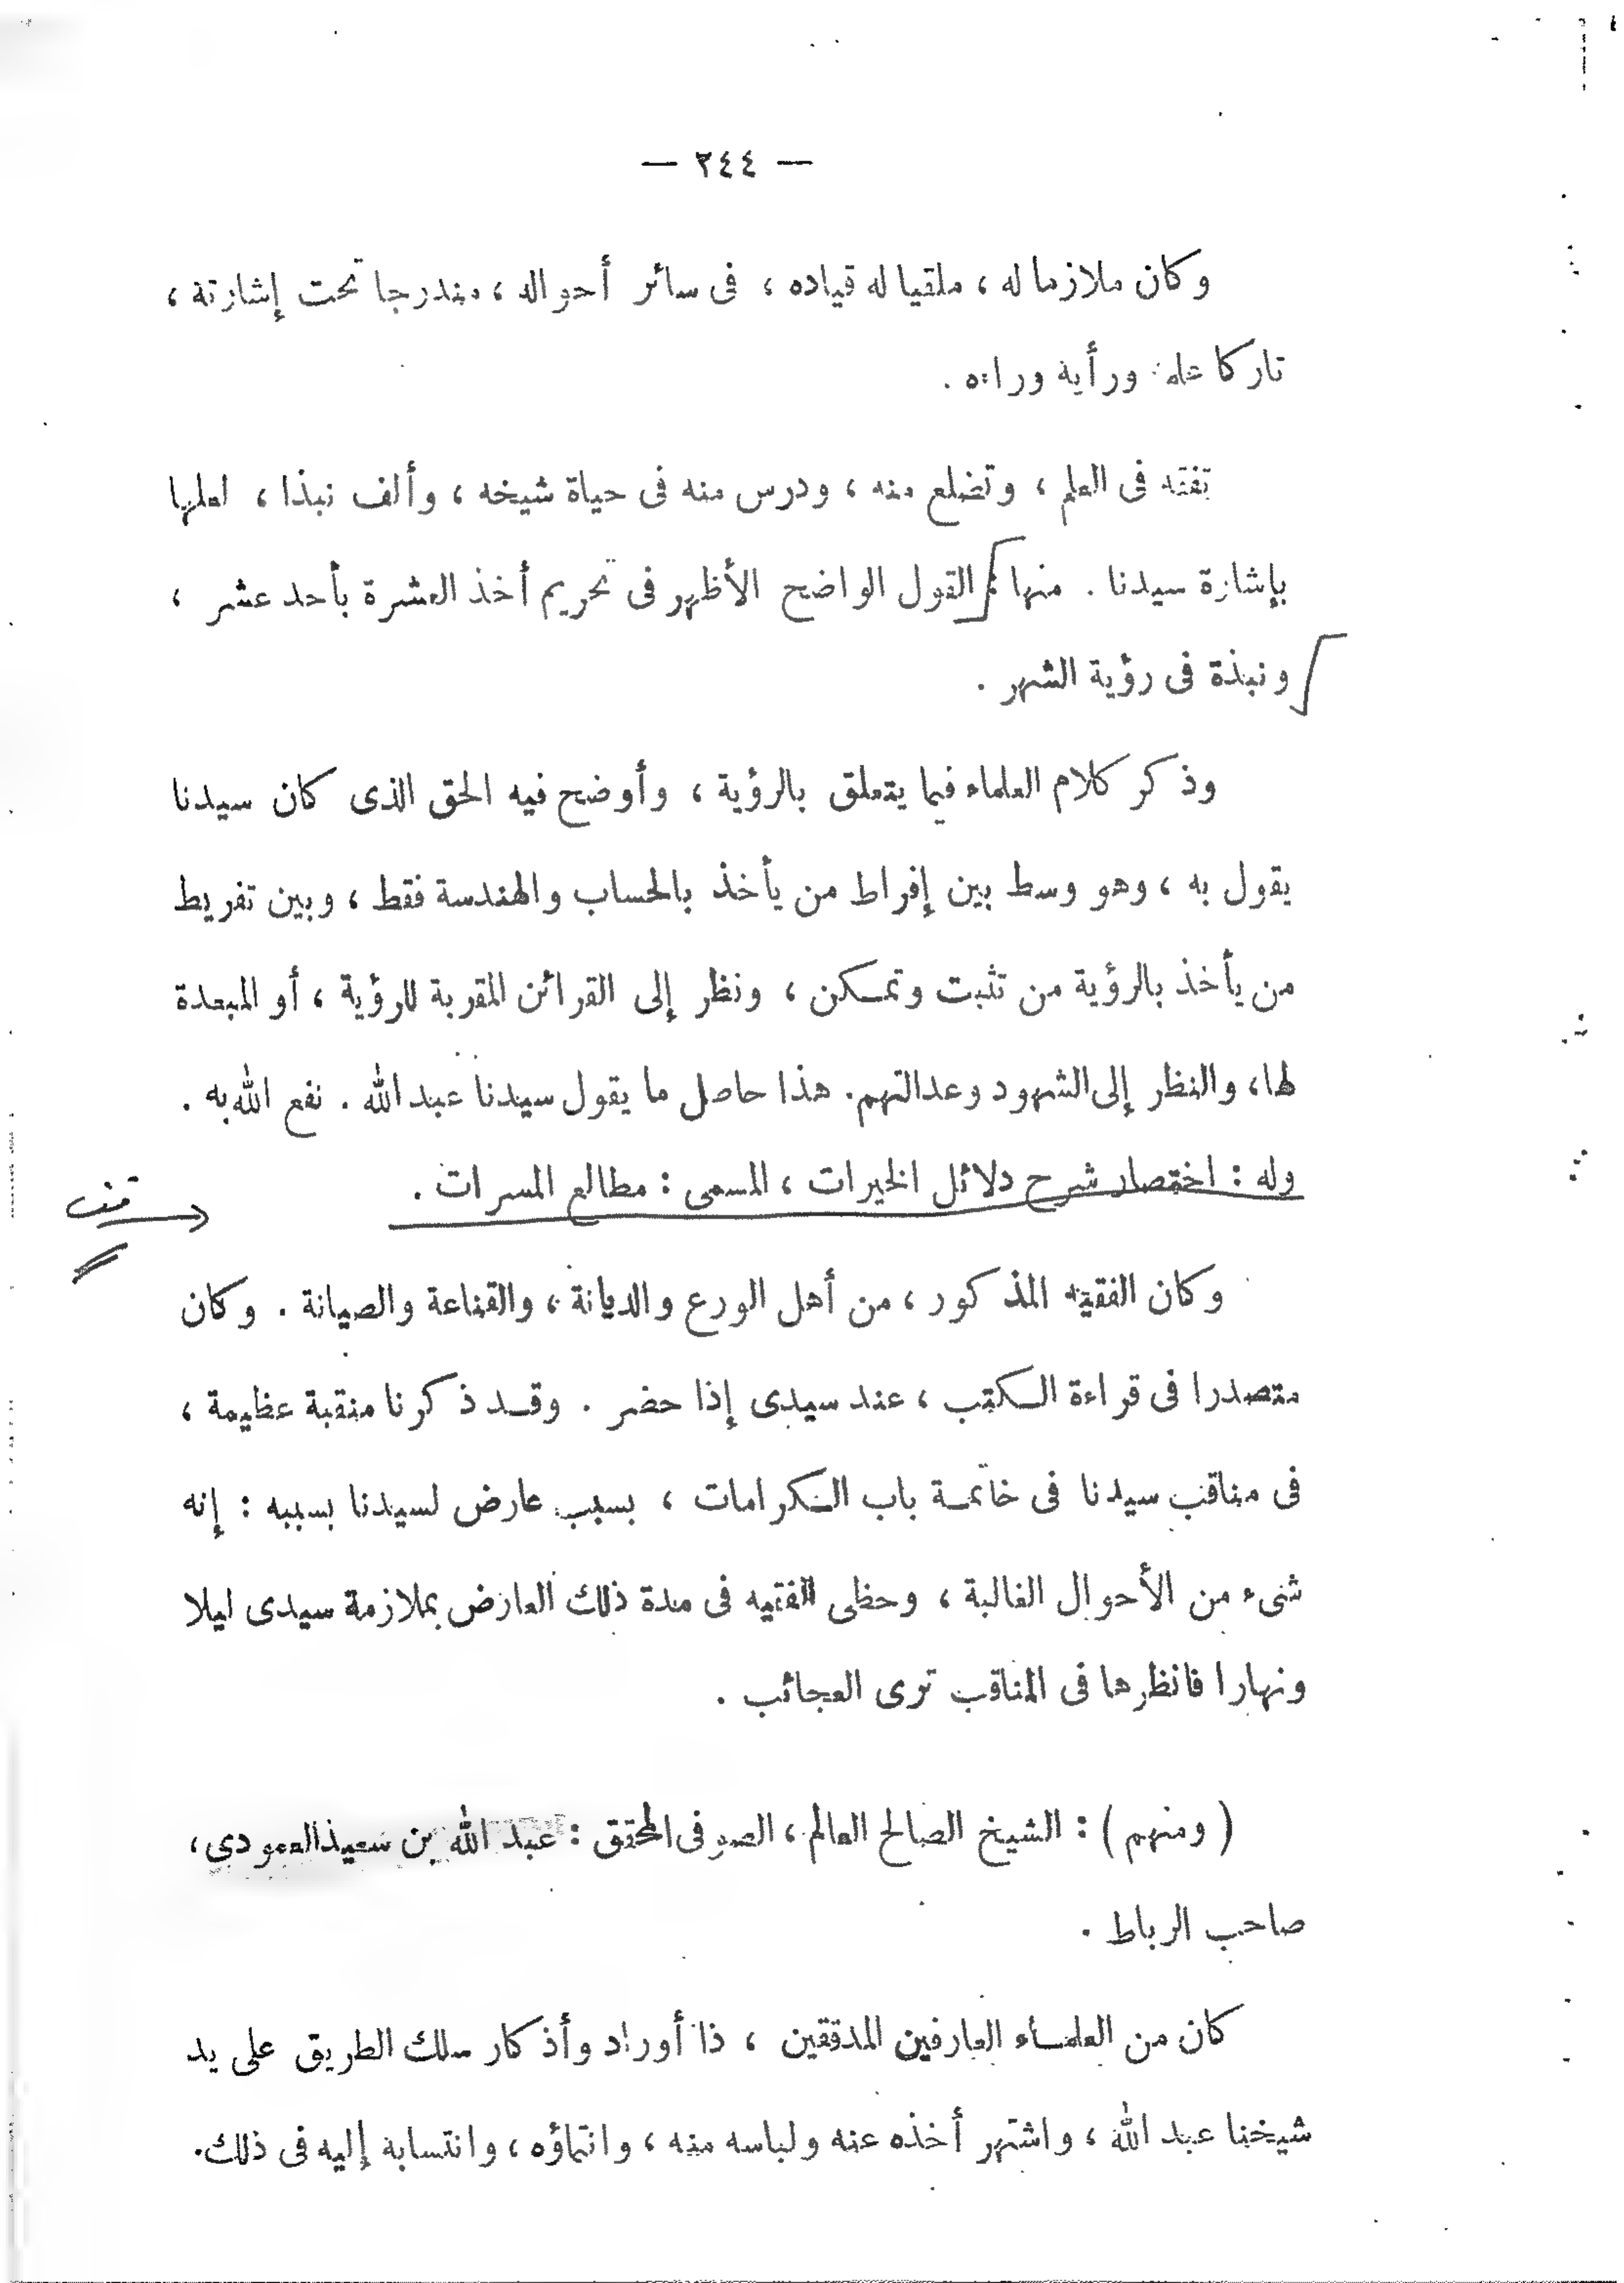 — ٢٤٤ —
وكان ملازما له ، ملقيا له قياده ، فى سائر أحواله ، مندرجا تحت إشارته ،
تاركا علمه ورأيه وراءه .
تفقه فى العلم ، وتضلع منه ، ودرس منه فى حياة شيخه ، وألف نبذا ، لعلها
بإشارة سيدنا . منها : القول الواضح الأظهر فى تحريم أخذ العشرة بأحد عشر ،
ونبذة فى رؤية الشهر .
وذكر كلام العلماء فيما يتعلق بالرؤية ، وأوضح فيه الحق الذى كان سيدنا
يقول به ، وهو وسط بين إفراط من يأخذ بالحساب والهندسة فقط ، وبين تفريط
من يأخذ بالرؤية من تثبت وتمكن ، ونظر إلى القرائن المقربة للرؤية ، أو المبعدة
لها، والنظر إلى الشهود وعدالتهم. هذا حاصل ما يقول سيدنا عبد الله . نفع الله به .
وله : اختصار شرح دلائل الخيرات ، المسمى : مطالع المسرات .
وكان الفقيه المذكور ، من أهل الورع والديانة ، والقناعة والصيانة . وكان
متصدرا فى قراءة الكتب ، عند سيدى إذا حضر . وقد ذكرنا منقبة عظيمة ،
فى مناقب سيدنا فى خاتمة باب الكرامات ، بسبب عارض لسيدنا بسببه : إنه
شىء من الأحوال الغالبة ، وحظى الفقيه فى مدة ذلك العارض بملازمة سيدى ليلا
ونهارا فانظرها فى المناقب ترى العجائب .
( ومنهم ) : الشيخ الصالح العالم ، الصوفى المحقق : عبد الله بن سعيد العمودى ،
صاحب الرباط .
كان من العلماء العارفين المدققين ، ذا أوراد وأذكار سلك الطريق على يد
شيخنا عبد الله ، واشتهر أخذه عنه ولباسه منه ، وانتماؤه ، وانتسابه إليه فى ذلك.